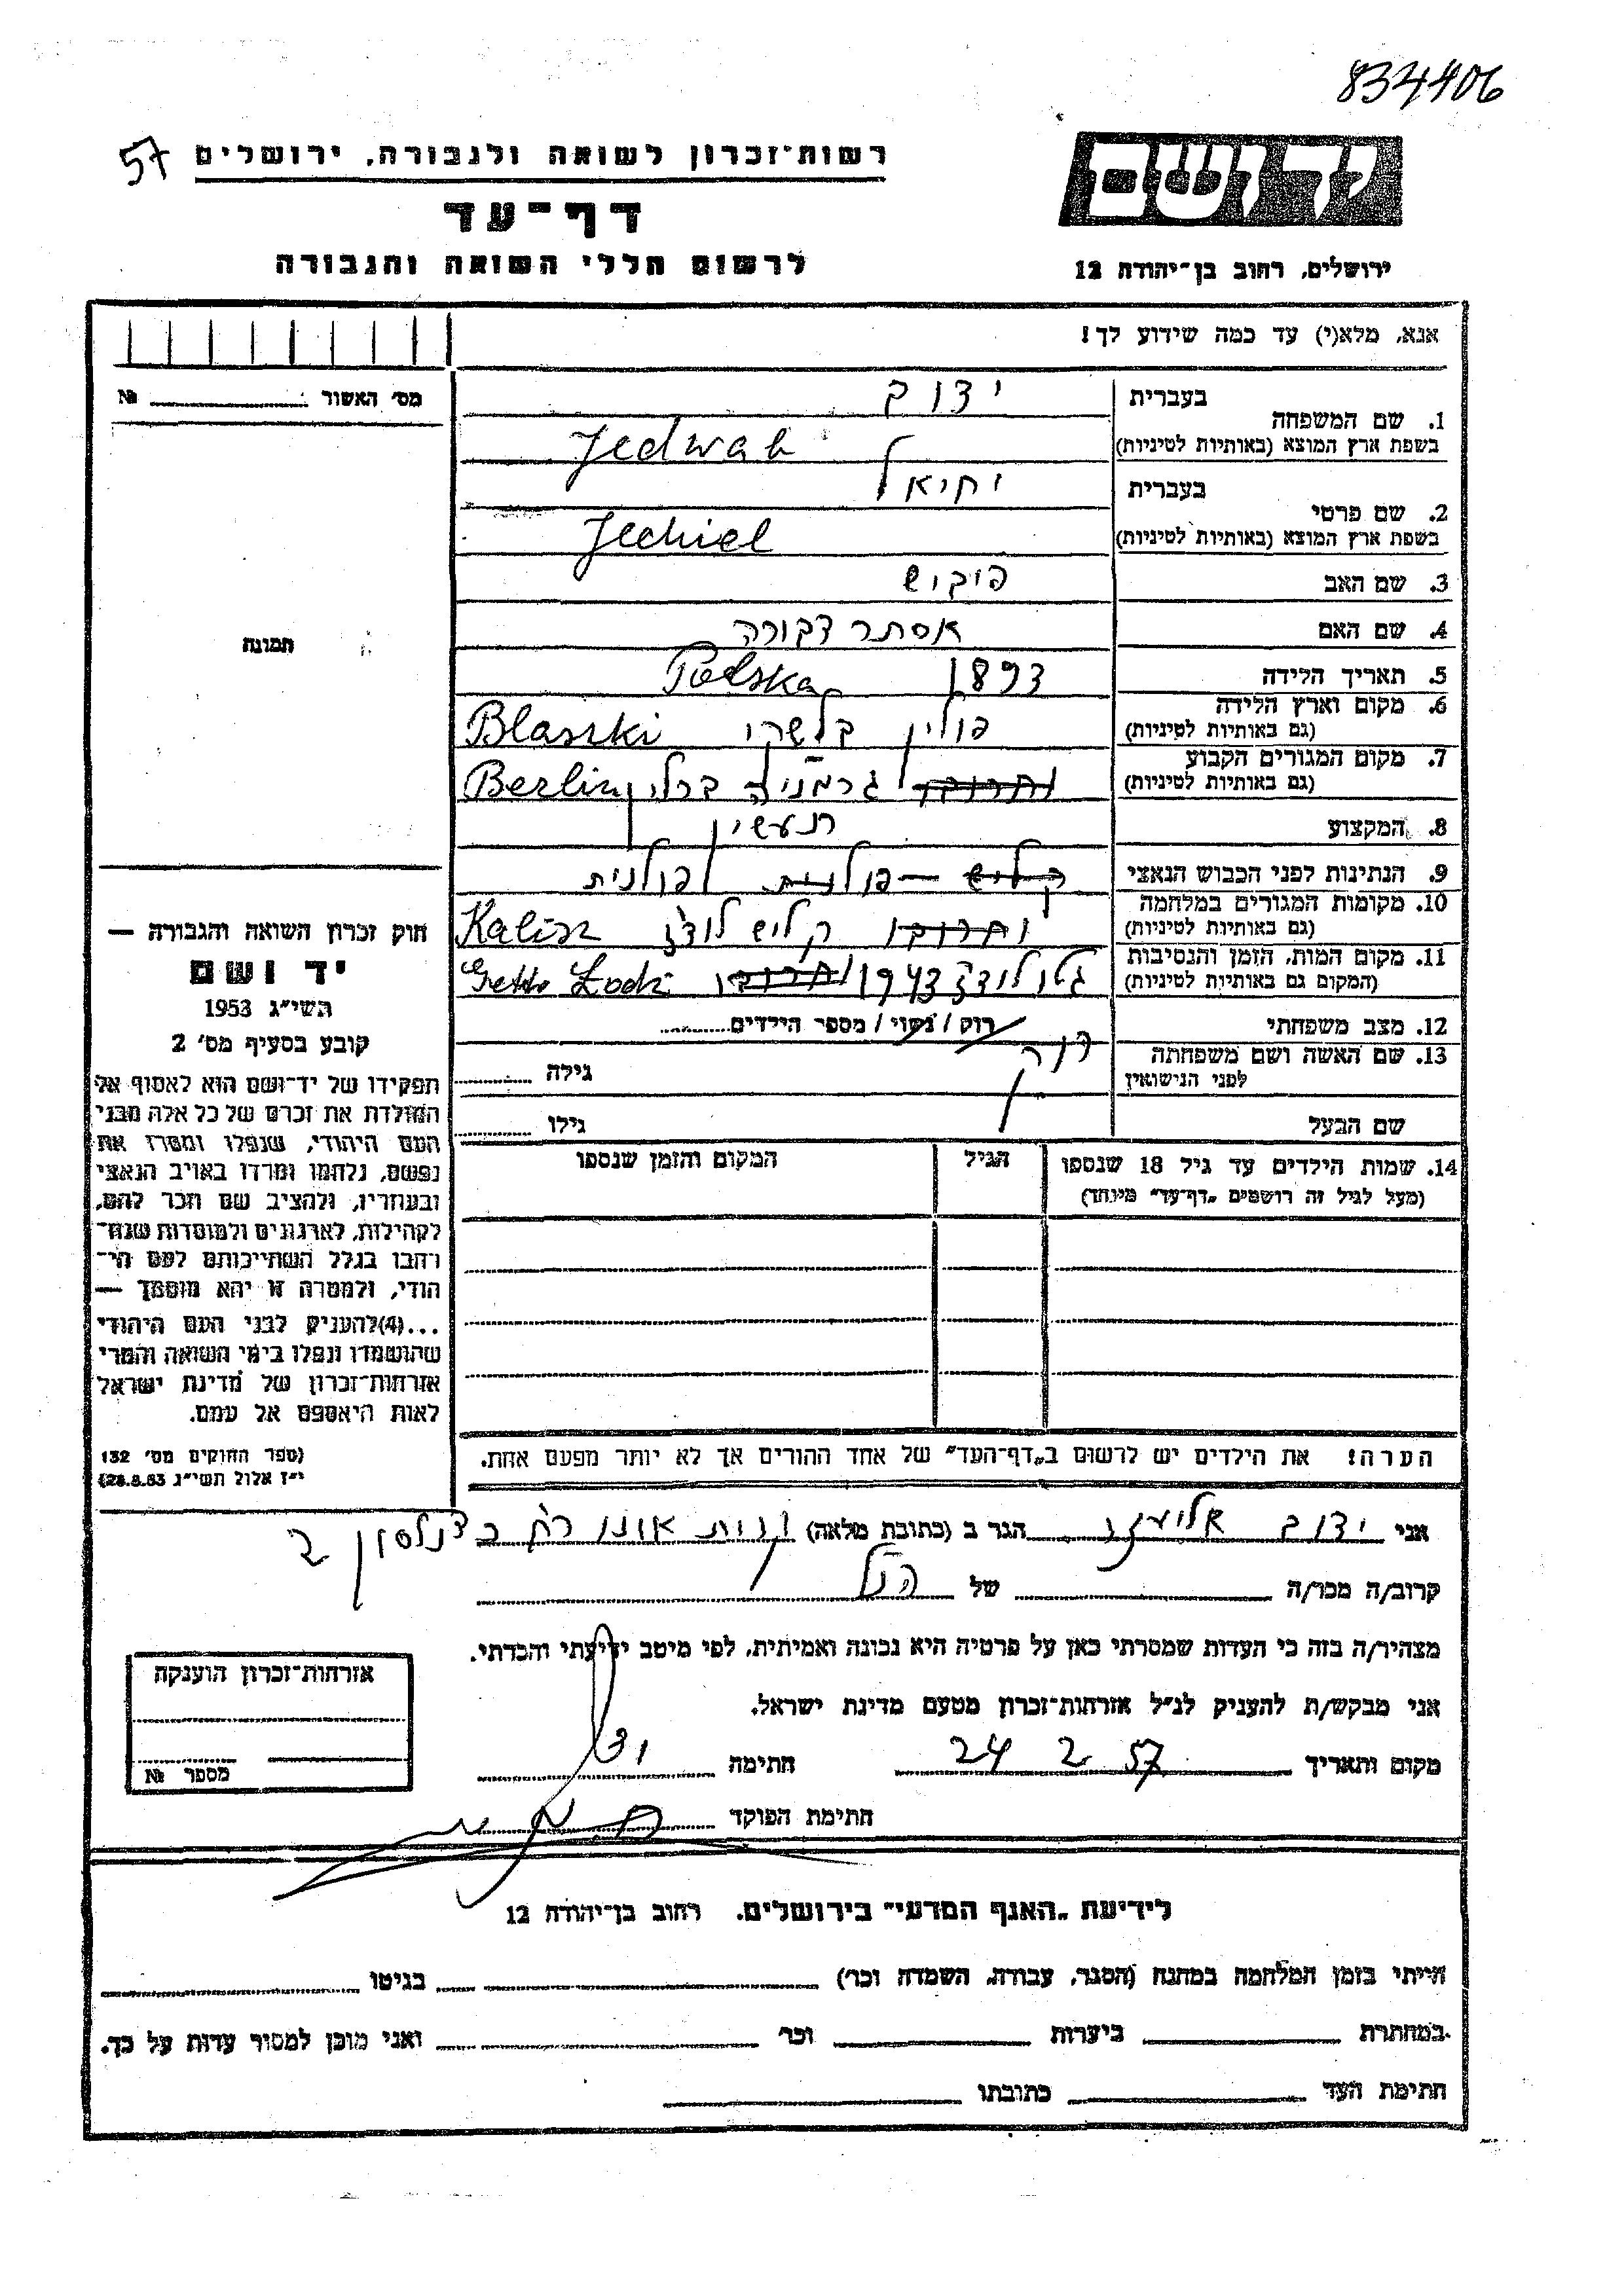 834406
יד ושם
ירושלים, רחוב בן־יהודה 12
רשות־זכרון לשואה ולגבורה, ירושלים
57
דף־עד
לרשום חללי השואה והגבורה
אנא, מלא(י) עד כמה שידוע לך!
מס׳ האשור № 
תמונה
1. שם המשפחה
בעברית ידוב
בשפת ארץ המוצא (באותיות לטיניות) Jedwab
2. שם פרטי
בעברית יחיאל
בשפת ארץ המוצא (באותיות לטיניות) Jechiel
3. שם האב פיבוש
4. שם האם אסתר דבורה
5. תאריך הלידה 1893 Polska
6. מקום וארץ הלידה (גם באותיות לטיניות) פולין בלשקי Blaszki
7. מקום המגורים הקבוע (גם באותיות לטיניות) גרמניה ברלין Berlin
8. המקצוע תעשין
9. הנתינות לפני הכבוש הנאצי קליש פולנית פולנית
10. מקומות המגורים במלחמה (גם באותיות לטיניות) קליש לודז Kalisz
11. מקום המות, הזמן והנסיבות (המקום גם באותיות לטיניות) גטו לודז 1943 Getto Lodz
12. מצב משפחתי רוק / נשוי / מספר הילדים
13. שם האשה ושם משפחתה לפני הנישואין גילה
שם הבעל גילו
14. שמות הילדים עד גיל 18 שנספו
(מעל לגיל זה רושמים „דף־עד״ מיוחד)
הגיל
המקום והזמן שנספו
הערה! את הילדים יש לרשום ב„דף־העד״ של אחד ההורים אך לא יותר מפעם אחת.
חוק זכרון השואה והגבורה —
יד ושם
השי״ג 1953
קובע בסעיף מס׳ 2
תפקידו של יד־ושם הוא לאסוף אל
המולדת את זכרם של כל אלה מבני
העם היהודי, שנפלו ומסרו את
נפשם, נלחמו ומרדו באויב הנאצי
ובעוזריו, ולהציב שם וזכר להם,
לקהילות, לארגונים ולמוסדות שנח־
רבו בגלל השתייכותם לעם הי־
הודי, ולמטרה זו יהא מוסמך —
...(4)להעניק לבני העם היהודי
שהושמדו ונפלו בימי השואה והמרי
אזרחות־זכרון של מדינת ישראל
לאות היאספם אל עמם.
(ספר החוקים מס׳ 132
י״ז אלול תשי״ג 28.8.53)
אני ידוב אליעזר הגר ב (כתובת מלאה) קרית אונו רח כצנלסון
קרוב/ה מכר/ה של הנ״ל
מצהיר/ה בזה כי העדות שמסרתי כאן על פרטיה היא נכונה ואמיתית, לפי מיטב ידיעתי והכרתי.
אני מבקש/ת להעניק לנ״ל אזרחות־זכרון מטעם מדינת ישראל.
מקום ותאריך 24 2 57 חתימה
חתימת הפוקד
אזרחות־זכרון הוענקה
מספר №
לידיעת „האגף המדעי״ בירושלים, רחוב בן־יהודה 12
הייתי בזמן המלחמה במחנה (הסגר, עבודה, השמדה וכר׳) בגיטו
במחתרת ביערות וכר׳ ואני מוכן למסור עדות על כך.
חתימת העד כתובתו